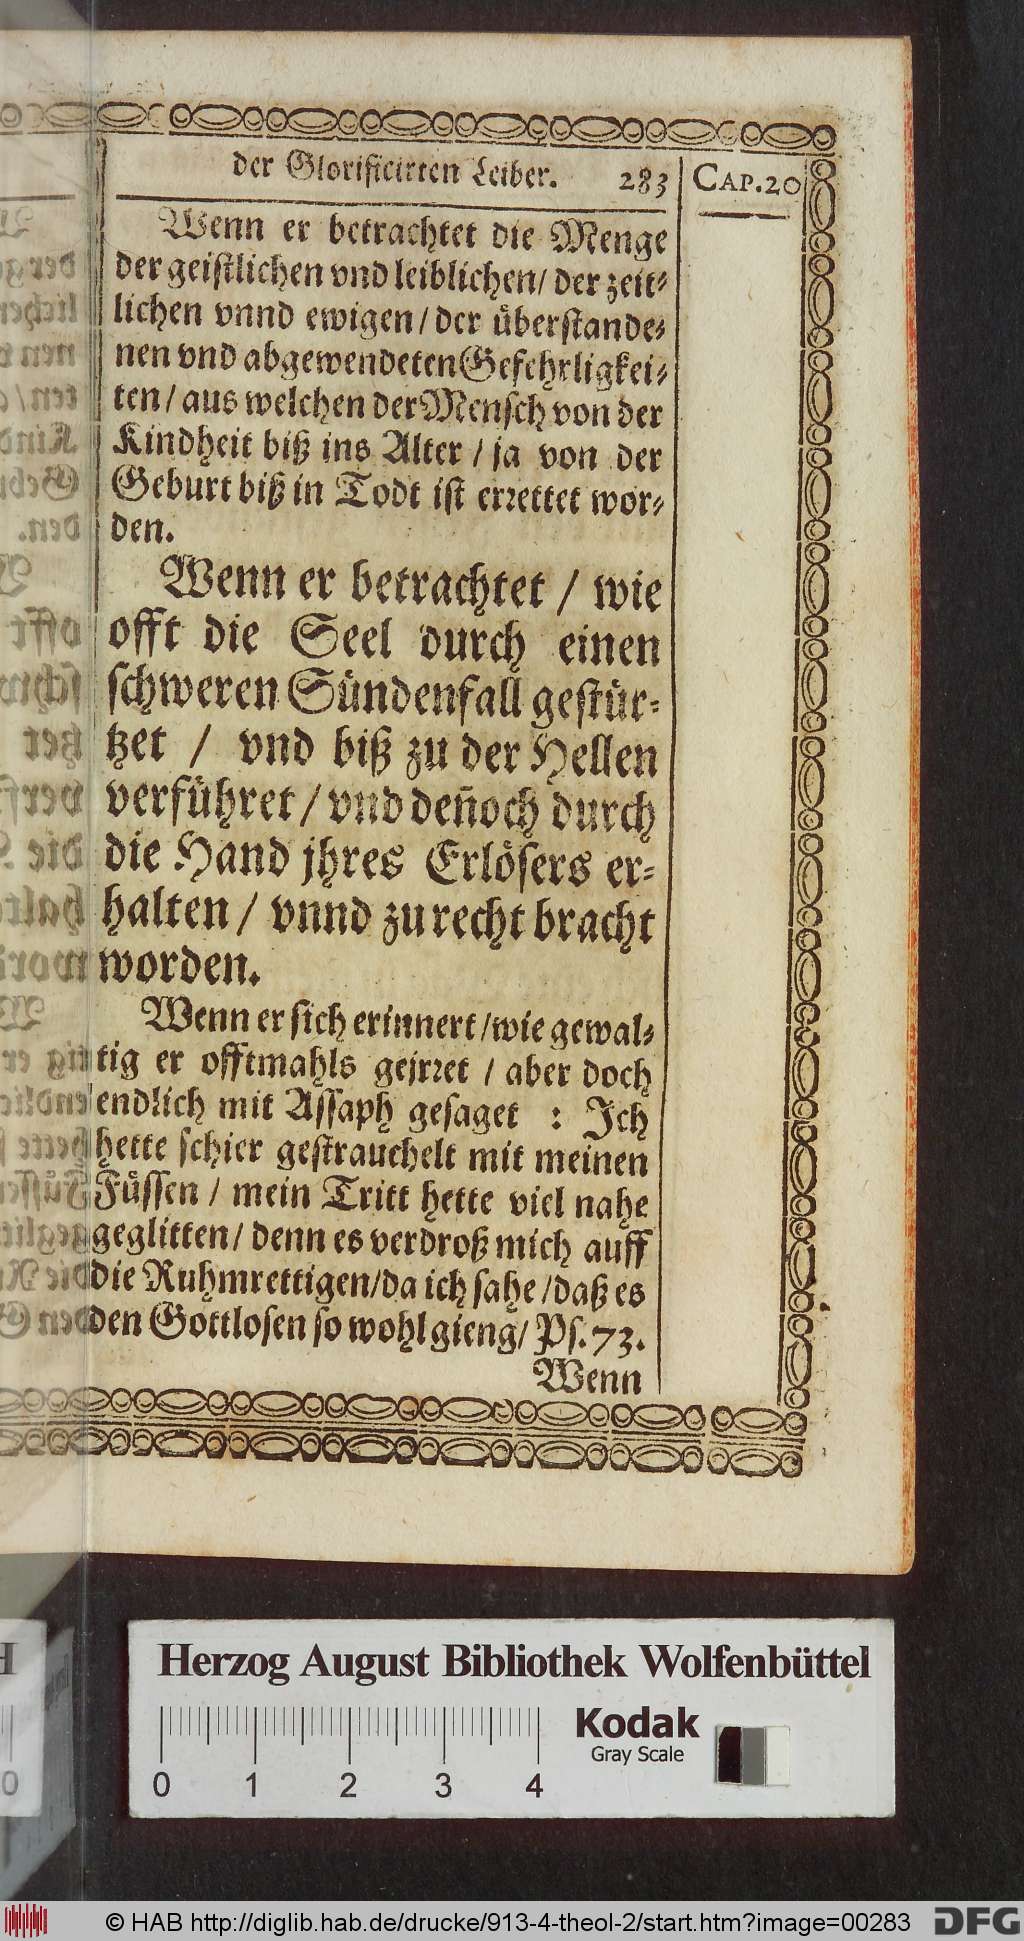 der Glorificirten Leiber. 283 CAP.20
Wenn er betrachtet die Menge
der geistlichen vnd leiblichen/ der zeit⸗
lichen vnnd ewigen / der überstande⸗
nen vnd abgewendeten Gefehrligkei⸗
ten / aus welchen der Mensch von der
Kindheit biß ins Alter / ja von der
Geburt biß in Todt ist errettet wor⸗
den.
Wenn er betrachtet / wie
offt die Seel durch einen
schweren Sündenfall gestür⸗
tzet / vnd biß zu der Hellen
verführet / vnd deñoch durch
die Hand jhres Erlösers er⸗
halten / vnnd zu recht bracht
worden.
Wenn er sich erinnert / wie gewal⸗
tig er offtmahls gejrret / aber doch
endlich mit Assaph gesaget : Ich
hette schier gestrauchelt mit meinen
Füssen / mein Tritt hette viel nahe
geglitten / denn es verdroß mich auff
die Ruhmrettigen / da ich sahe / daß es
den Gottlosen so wohl gieng / Ps. 73.
Wenn
Herzog August Bibliothek Wolfenbüttel
Kodak
Gray Scale
0 1 2 3 4
© HAB http://diglib.hab.de/drucke/913-4-theol-2/start.htm?image=00283 DFG